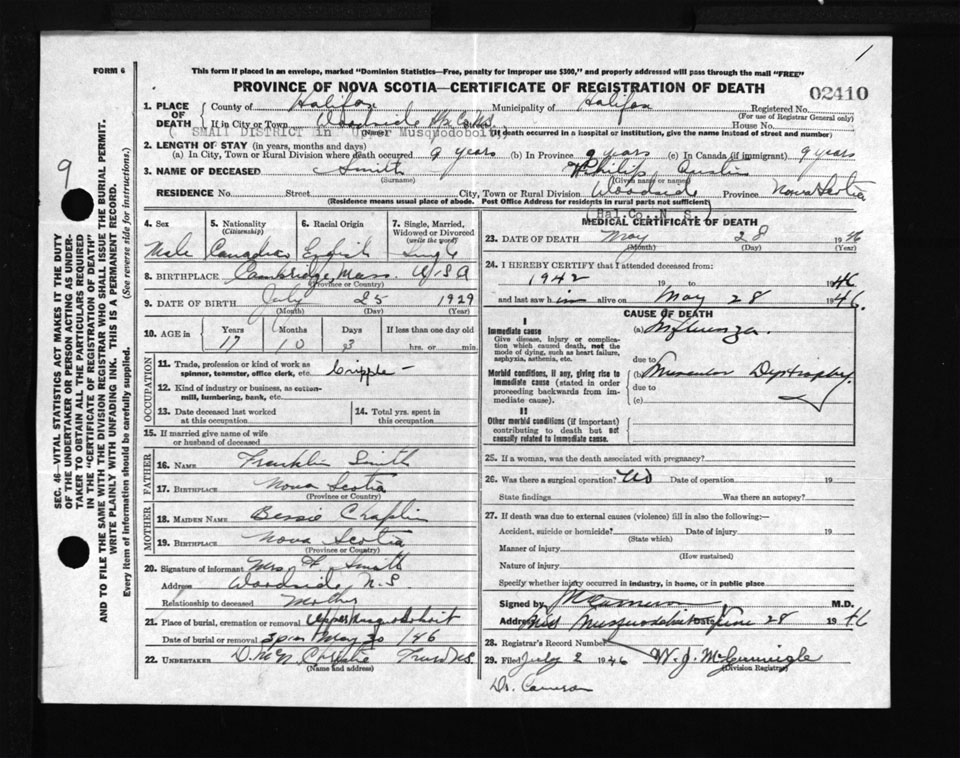 1
FORM 6
This form if placed in an envelope, marked "Dominion Statistics—Free, penalty for improper use $300," and properly addressed will pass through the mail "FREE"
PROVINCE OF NOVA SCOTIA—CERTIFICATE OF REGISTRATION OF DEATH
02410
1. PLACE OF DEATH
County of Halifax Municipality of Halifax Registered No.
(For use of Registrar General only)
If in City or Town Woodside Hx Co N.S. House No.
( SMALL DISTRICT in Upper Musquodoboit)
(Name) (If death occurred in a hospital or institution, give the name instead of street and number)
2. LENGTH OF STAY (in years, months and days)
(a) In City, Town or Rural Division where death occurred 9 years (b) In Province 9 years (c) In Canada (if immigrant) 9 years
3. NAME OF DECEASED Smith Philip Austin
(Surname) (Given name or names)
RESIDENCE No. Street City, Town or Rural Division Woodside Province Nova Scotia
(Residence means usual place of abode. Post Office Address for residents in rural parts not sufficient)
Hal.Co. N.S.
4. Sex
5. Nationality
(Citizenship)
6. Racial Origin
7. Single, Married, Widowed or Divorced
(write the word)
Male Canadian English Single
8. BIRTHPLACE Cambridge, Mass. USA
(Province or Country)
9. DATE OF BIRTH July 25 1929
(Month) (Day) (Year)
10. AGE in
Years Months Days If less than one day old
17 10 3 hrs. or min.
OCCUPATION
11. Trade, profession or kind of work as spinner, teamster, office clerk, etc. Cripple –
12. Kind of industry or business, as cotton-mill, lumbering, bank, etc.
13. Date deceased last worked at this occupation
14. Total yrs. spent in this occupation
15. If married give name of wife or husband of deceased
FATHER
16. NAME Franklin Smith
17. BIRTHPLACE Nova Scotia
(Province or Country)
MOTHER
18. MAIDEN NAME Bessie Chaplin
19. BIRTHPLACE Nova Scotia
(Province or Country)
20. Signature of informant Mrs. F. Smith
Address Woodside, N.S.
Relationship to deceased Mother
21. Place of burial, cremation or removal Upper Musquodoboit
Date of burial or removal 3 pm May 30 /46
22. UNDERTAKER D. McN Christie Truro N.S.
(Name and address)
MEDICAL CERTIFICATE OF DEATH
23. DATE OF DEATH May 28 1946
(Month) (Day)
24. I HEREBY CERTIFY that I attended deceased from:
1942 19 to 1946
and last saw him alive on May 28 1946.
CAUSE OF DEATH
I
Immediate cause
Give disease, injury or complication which caused death, not the mode of dying, such as heart failure, asphyxia, asthenia, etc.
(a) Influenza.
due to
Morbid conditions, if any, giving rise to immediate cause (stated in order proceeding backwards from immediate cause).
(b) Muscular Dystrophy.
due to
(c)
II
Other morbid conditions (if important) contributing to death but not causally related to immediate cause.
25. If a woman, was the death associated with pregnancy?
26. Was there a surgical operation? No Date of operation 19
State findings Was there an autopsy?
27. If death was due to external causes (violence) fill in also the following:—
Accident, suicide or homicide? Date of injury 19
(State which)
Manner of injury
(How sustained)
Nature of injury
Specify whether injury occurred in industry, in home, or in public place
Signed by Cameron M.D.
Address Mid Musquodoboit Date June 28 1946
28. Registrar's Record Number
29. Filed July 2 1946 W. J. McGunnigle
(Division Registrar)
Dr. Cameron
9
SEC. 46—VITAL STATISTICS ACT MAKES IT THE DUTY OF THE UNDERTAKER OR PERSON ACTING AS UNDERTAKER TO OBTAIN ALL THE PARTICULARS REQUIRED IN THE "CERTIFICATE OF REGISTRATION OF DEATH" AND TO FILE THE SAME WITH THE DIVISION REGISTRAR WHO SHALL ISSUE THE BURIAL PERMIT.
WRITE PLAINLY WITH UNFADING INK. THIS IS A PERMANENT RECORD.
Every item of information should be carefully supplied. (See reverse side for instructions.)